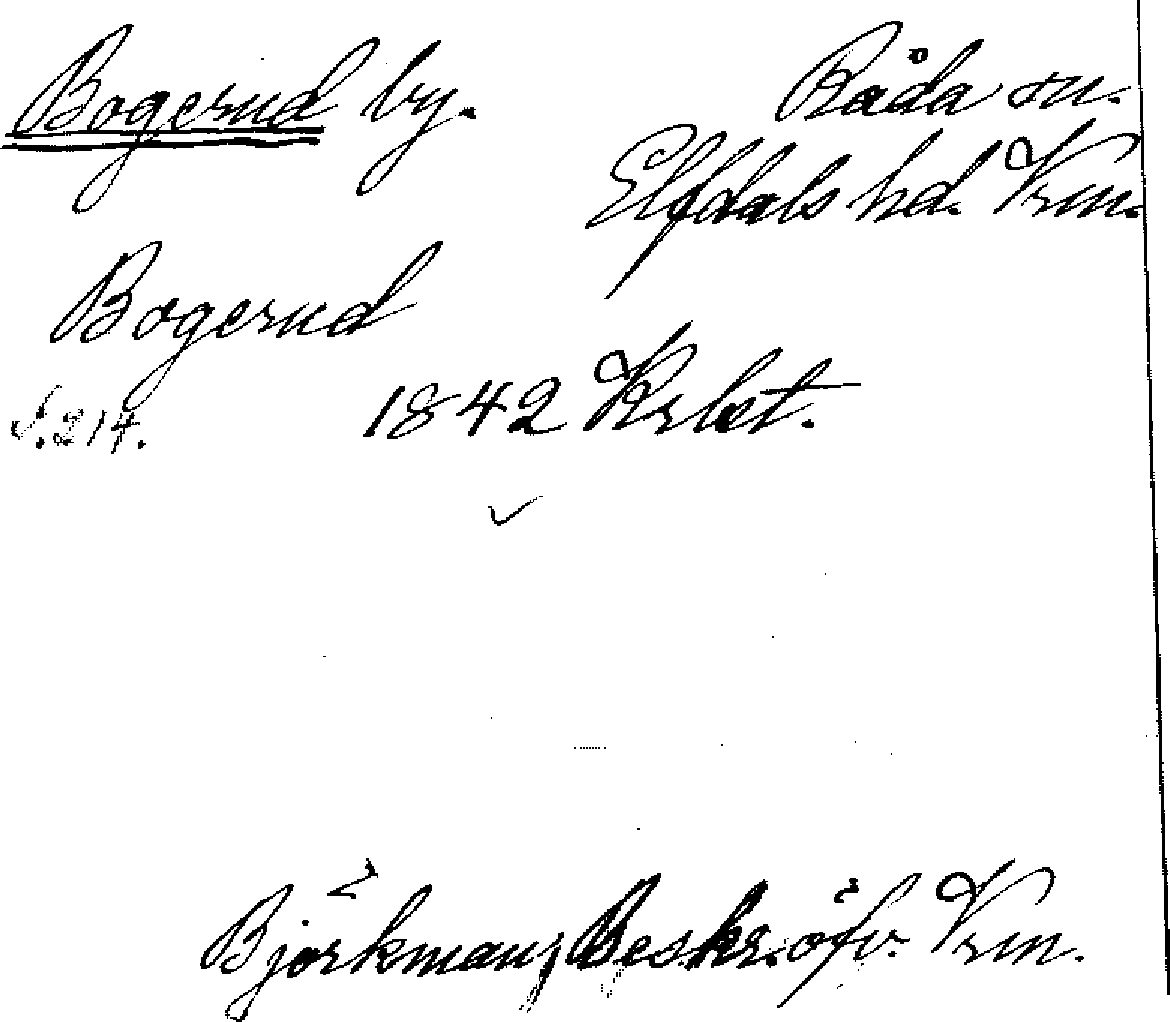 Bogerud by. Råda sn.
Elfdals hd. Vrm.
Bogerud
S. 214. 1842 Krbet.
Björkman, Beskr. öfv. Vrm.